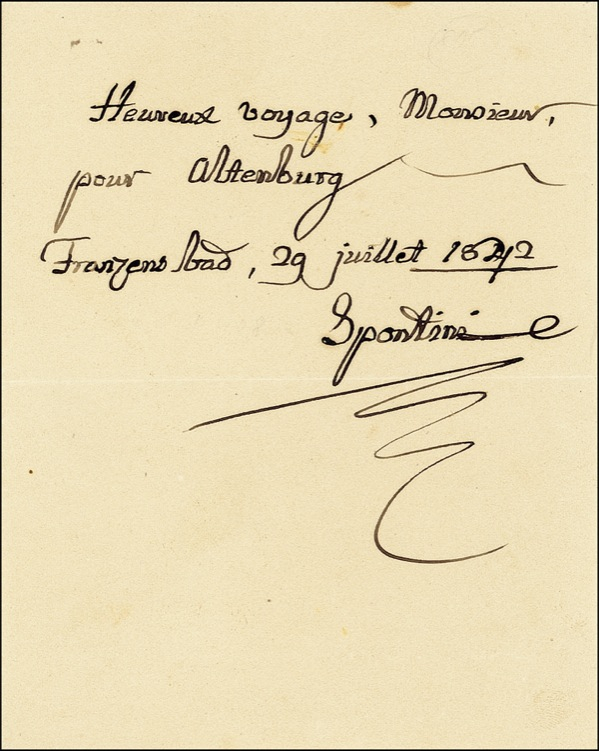 Heureux voyage, Monsieur,
pour Altenburg
Franzensbad, 29 juillet 1842
Spontini